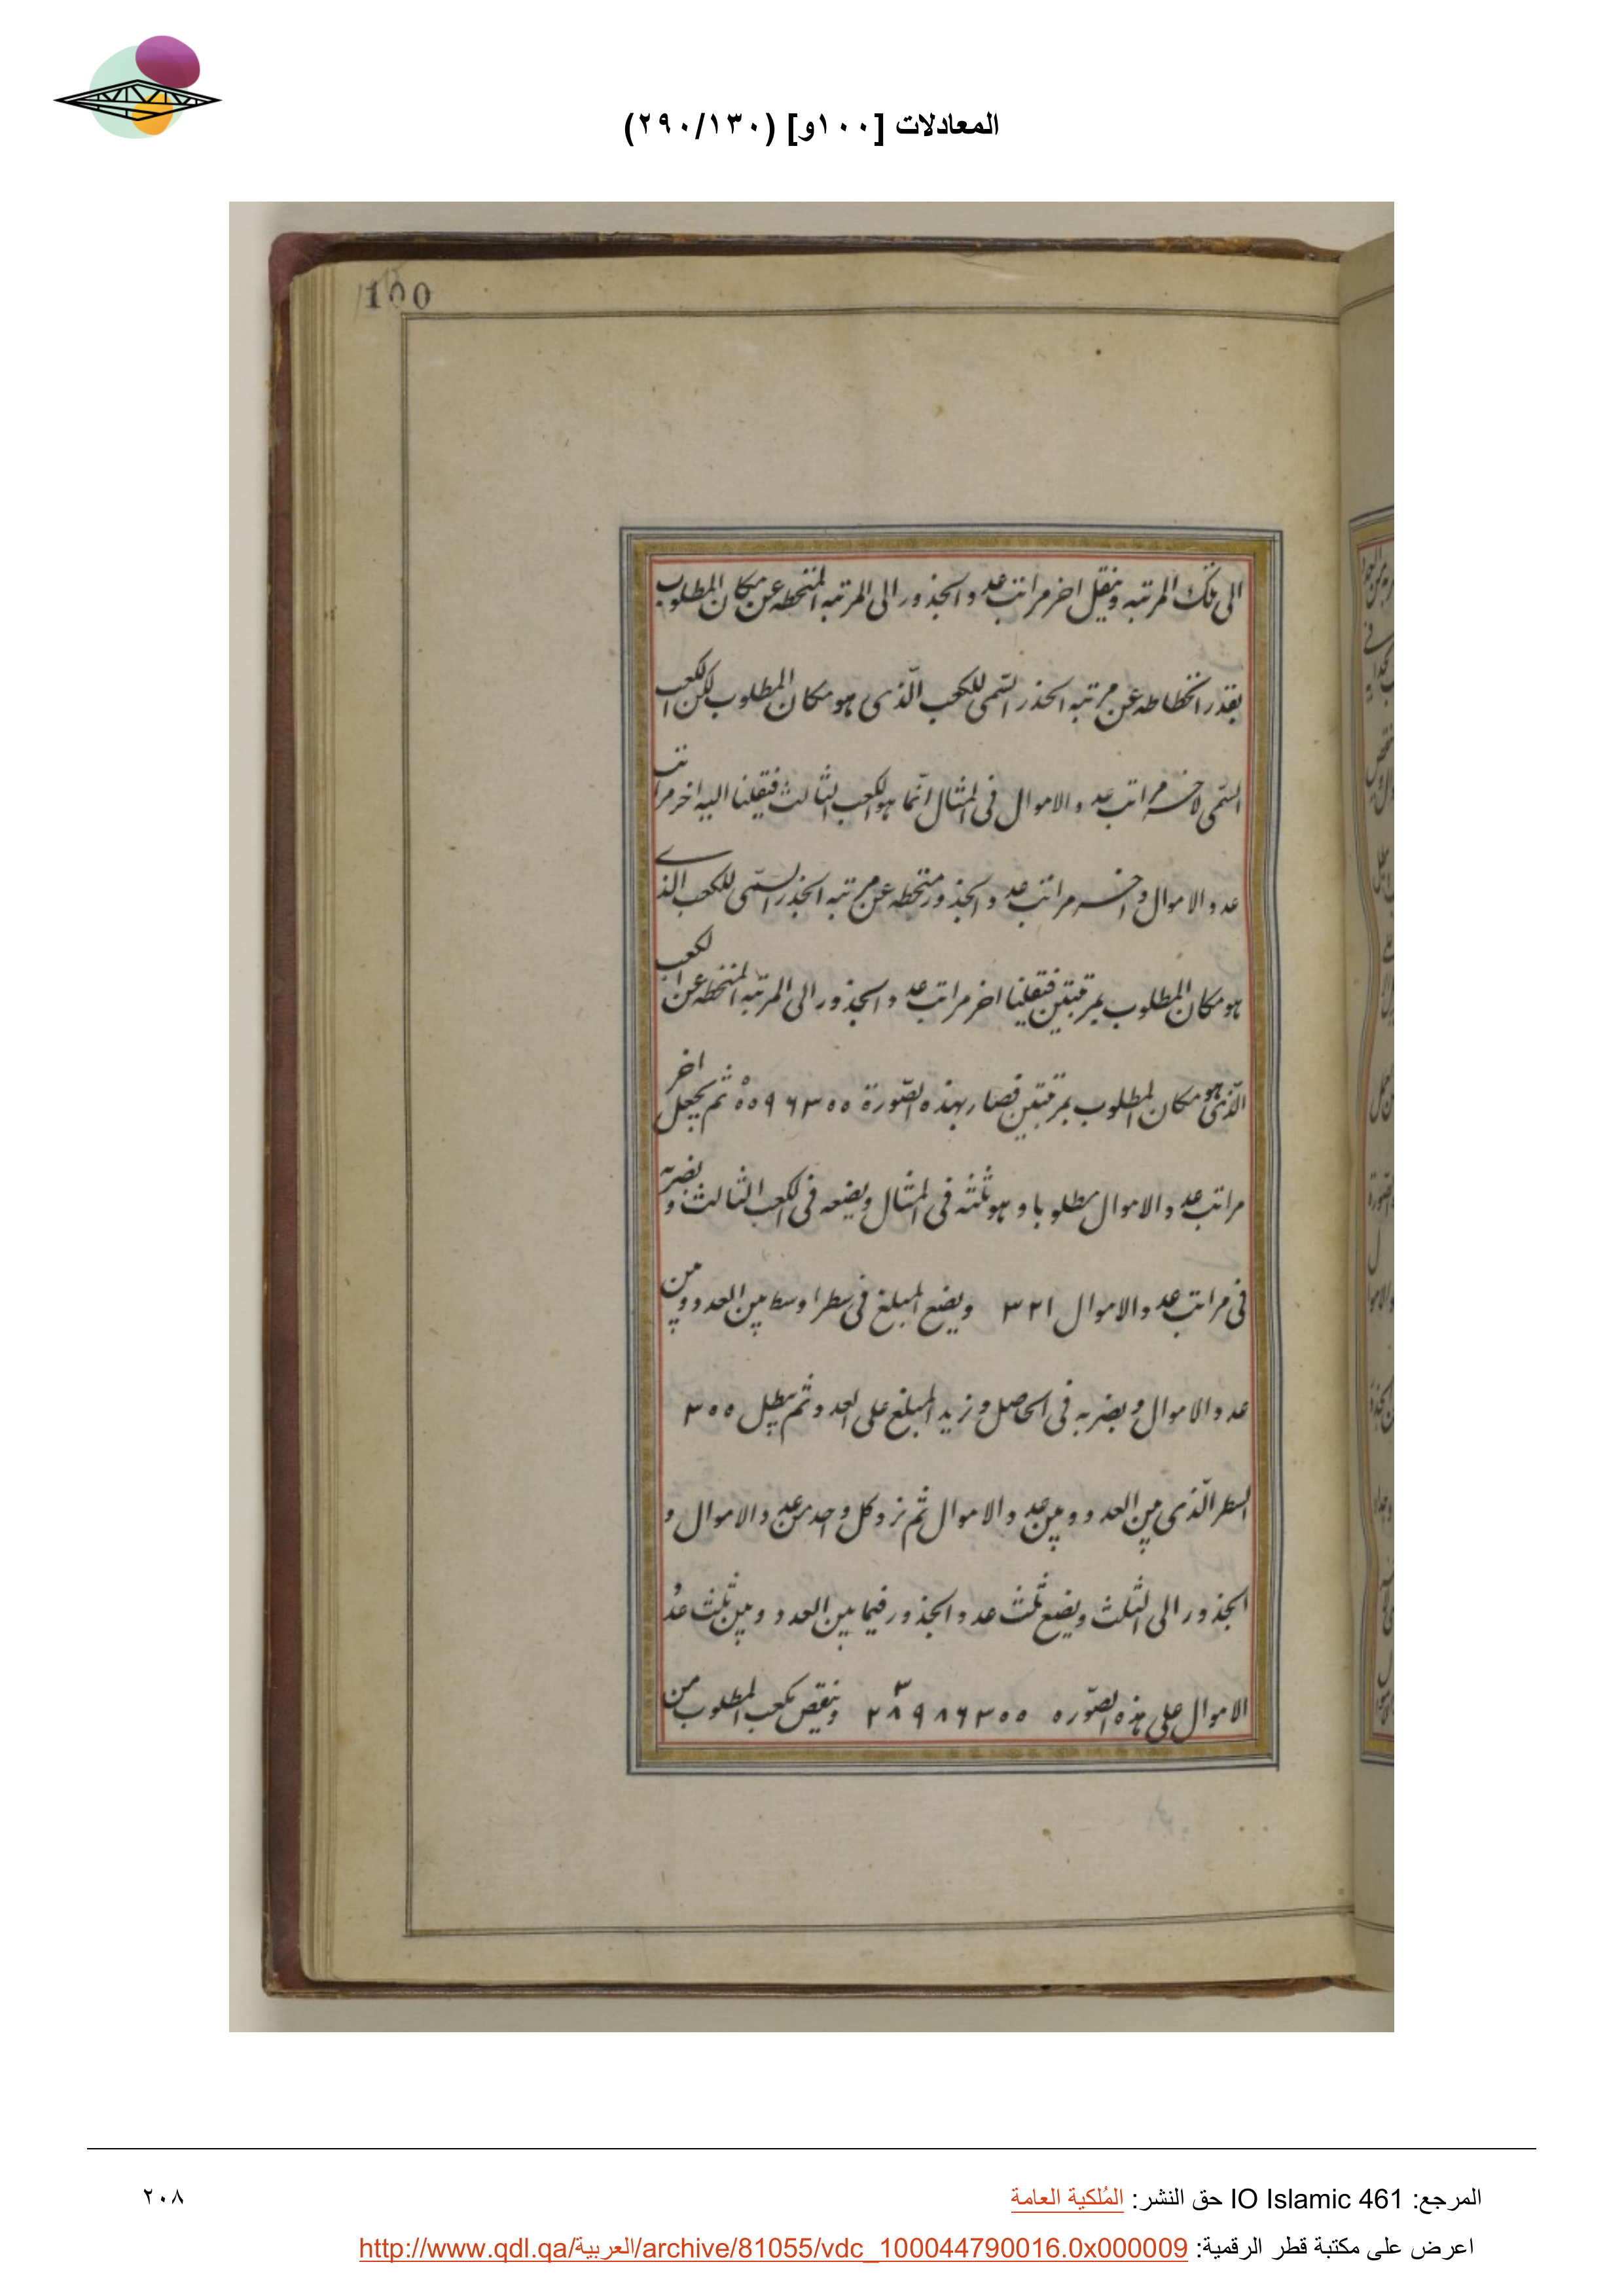 المعادلات [١٠٠و] (٢٩٠/١٣٠)
100
الى تلك المرتبه وينقل اخر مراتب عدد الجذور الى المرتبه المنحطه عن مكان المطلوب
بقدر انحطاطه عن مرتبه الجذر السّمى للكعب الّذى هو مكان المطلوب لكن الكعب
السّمى لاخر مراتب عدد الاموال فى المثال انّما هو الكعب الثالث فنقلنا اليه اخر مراتب
عدد الاموال واخر مراتب عدد الجذور منحطه عن مرتبه الجذر السّمى للكعب الذى
هو مكان المطلوب بمرتبتين فنقلنا اخر مراتب عدد الجذور الى المرتبه المنحطه عن الكعب
الّذى هو مكان المطلوب بمرتبتين فصار بهذه الصّورة ٥٥٩٦٣٠٠ ثم يجعل اخر
مراتب عدد الاموال مطلوبا وهو ثلثه فى المثال ويضعه فى الكعب الثالث ويضربه
فى مراتب عدد الاموال ٣٢١ ويضع المبلغ فى سطر اوسط بين العدد وبين
عدد الاموال ويضربه فى الحاصل وزيد المبلغ على العدد ثم يبطل ٣٠٠
السطر الّذى بين العدد وبين عدد الاموال ثم نرد كل واحد من عدد الاموال و
الجذور الى الثلث ويضع ثلث عدد الجذور فيما بين العدد وبين ثلث عدد
الاموال على هذه الصّوره ٢٨٩٨٦٣٠٠ ٣ وينقص مكعب المطلوب من
المرجع: IO Islamic 461 حق النشر: المُلكية العامة
٢٠٨
اعرض على مكتبة قطر الرقمية: http://www.qdl.qa/العربية/archive/81055/vdc_100044790016.0x000009